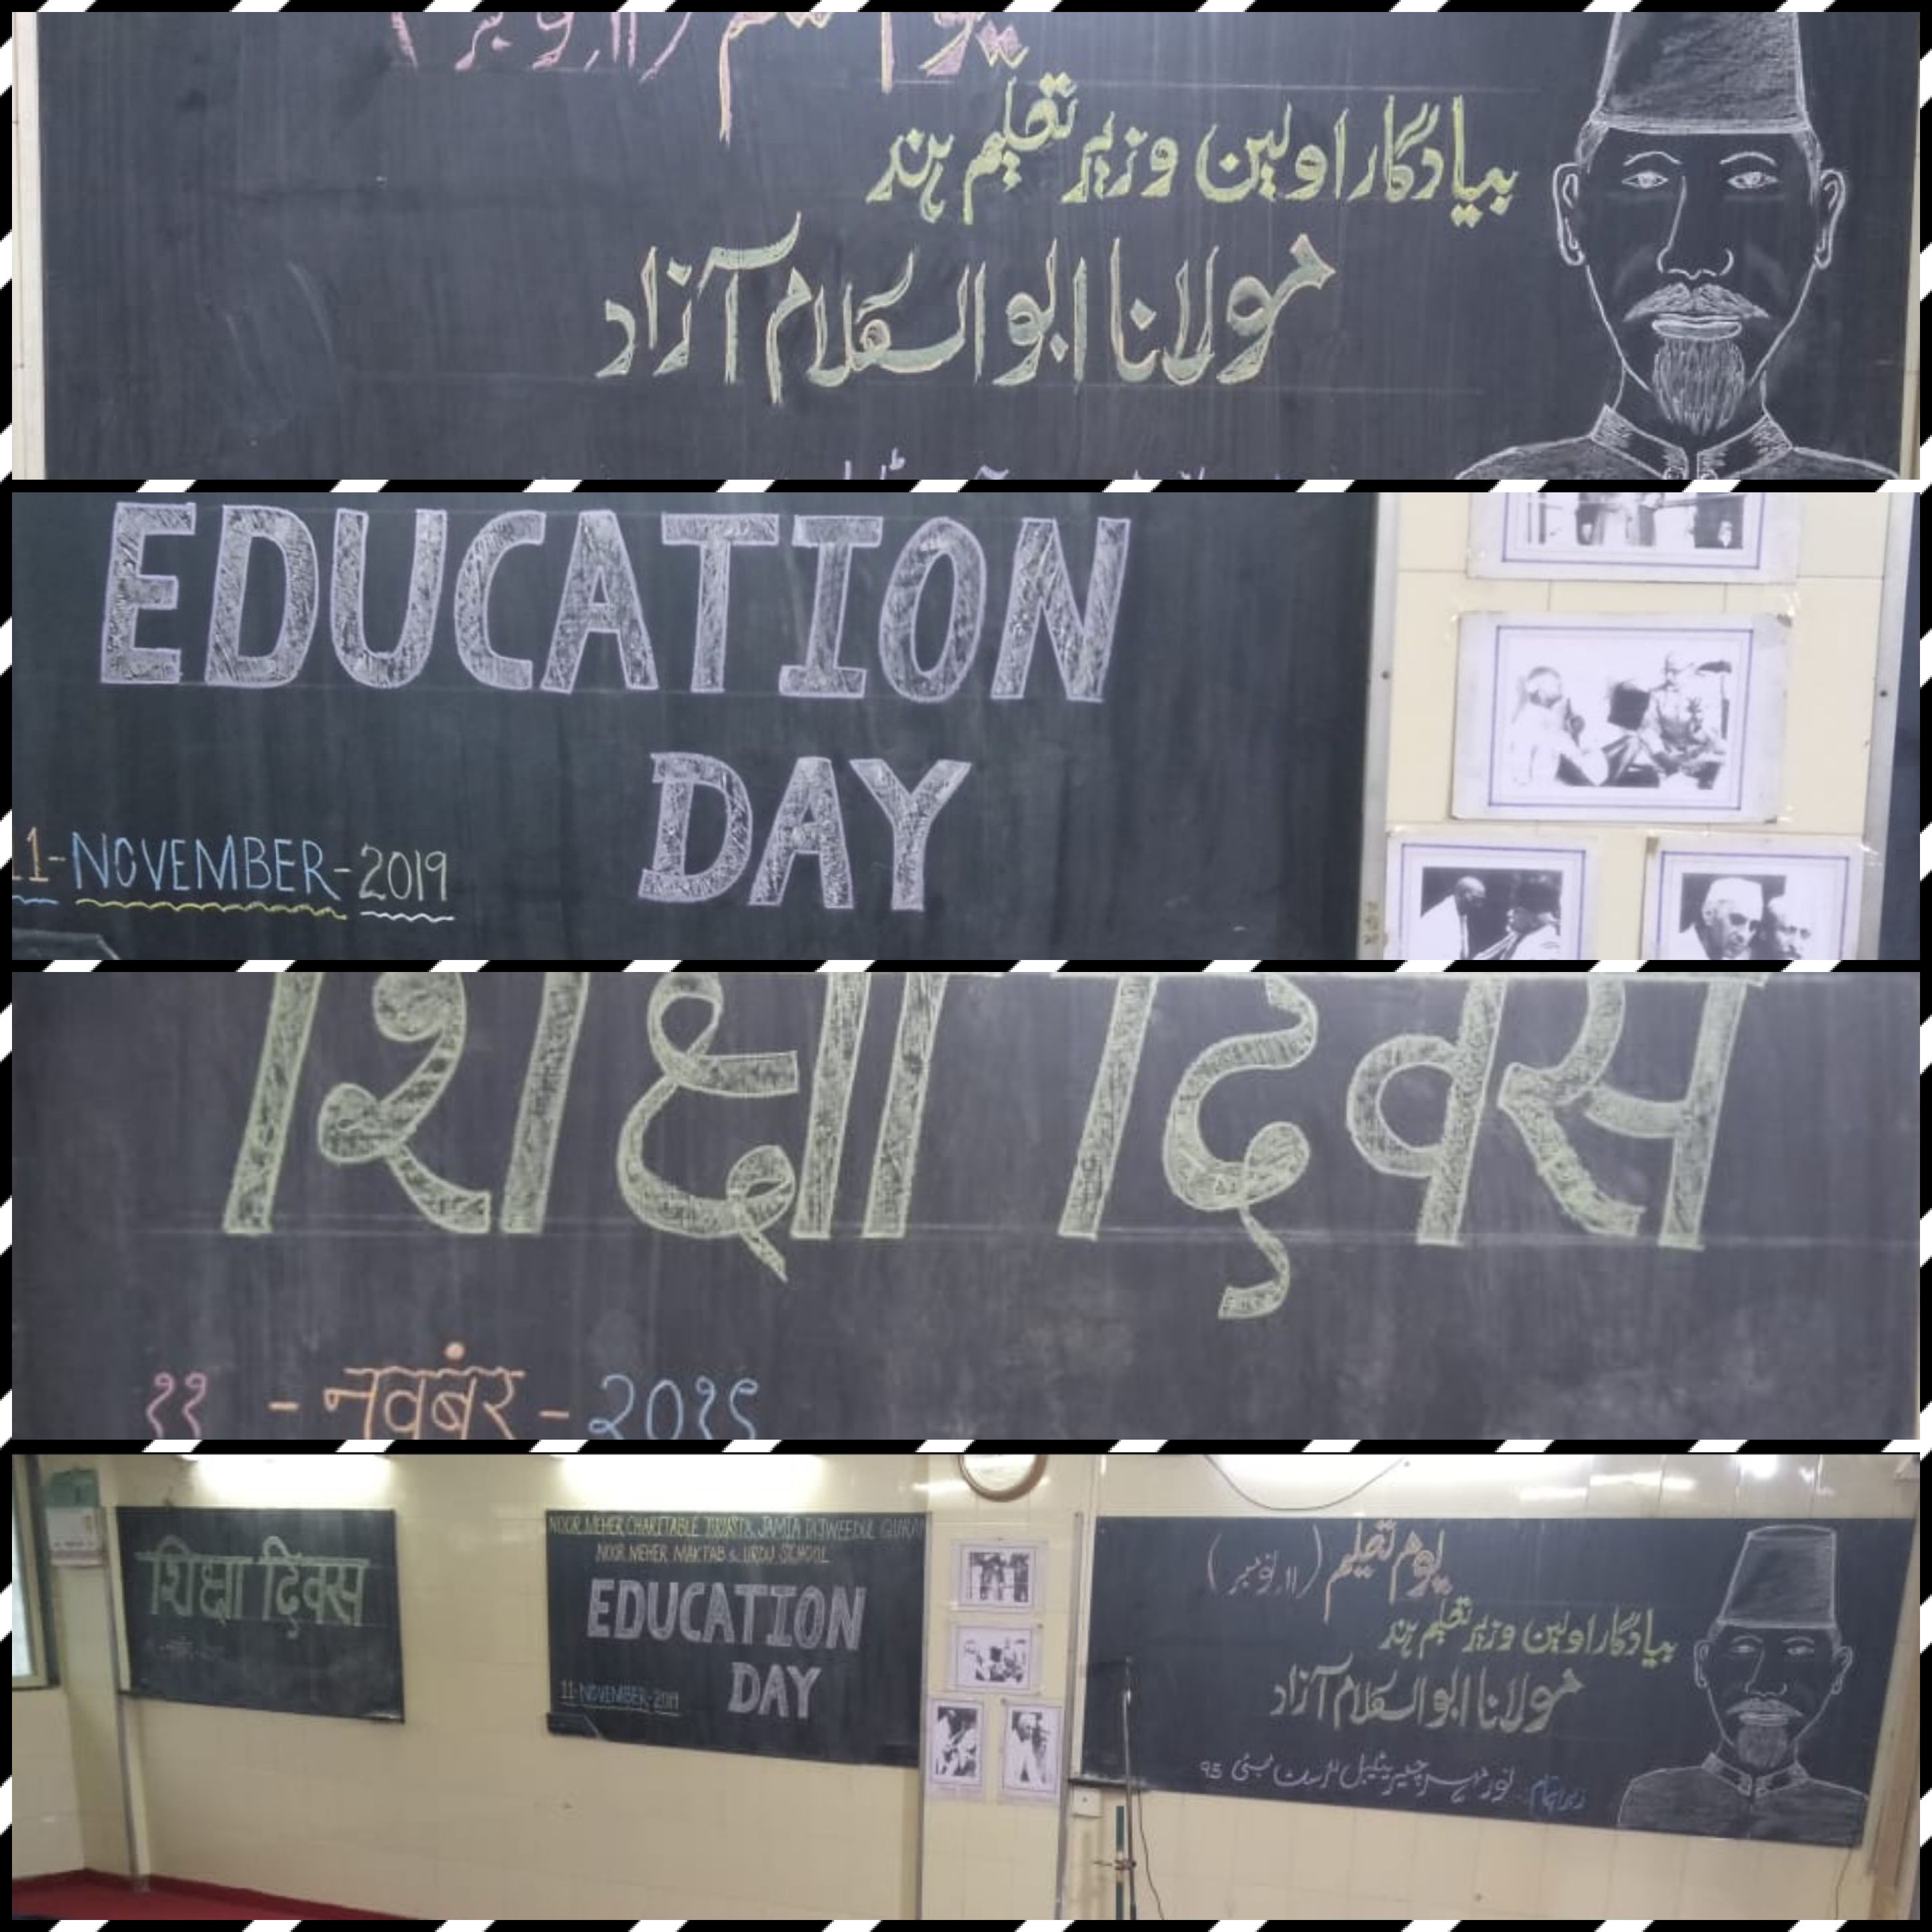 یوم تعلیم (۱۱ نومبر)
بیادگار اولین وزیر تعلیم ہند
مولانا ابوالکلام آزاد
EDUCATION
DAY
11-NOVEMBER-2019
शिक्षा दिवस
११ - नवबंर - २०१९
शिक्षा दिवस
NOOR MEHER CHARITABLE TRUST & JAMIA TAJWEEDUL QURAN
NOOR MEHER MAKTAB & URDU SCHOOL
EDUCATION
DAY
11-NOVEMBER-2019
یوم تعلیم (۱۱ نومبر)
بیادگار اولین وزیر تعلیم ہند
مولانا ابوالکلام آزاد
زیر اہتمام: نور مہر چیریٹیبل ٹرسٹ ممبئی 95